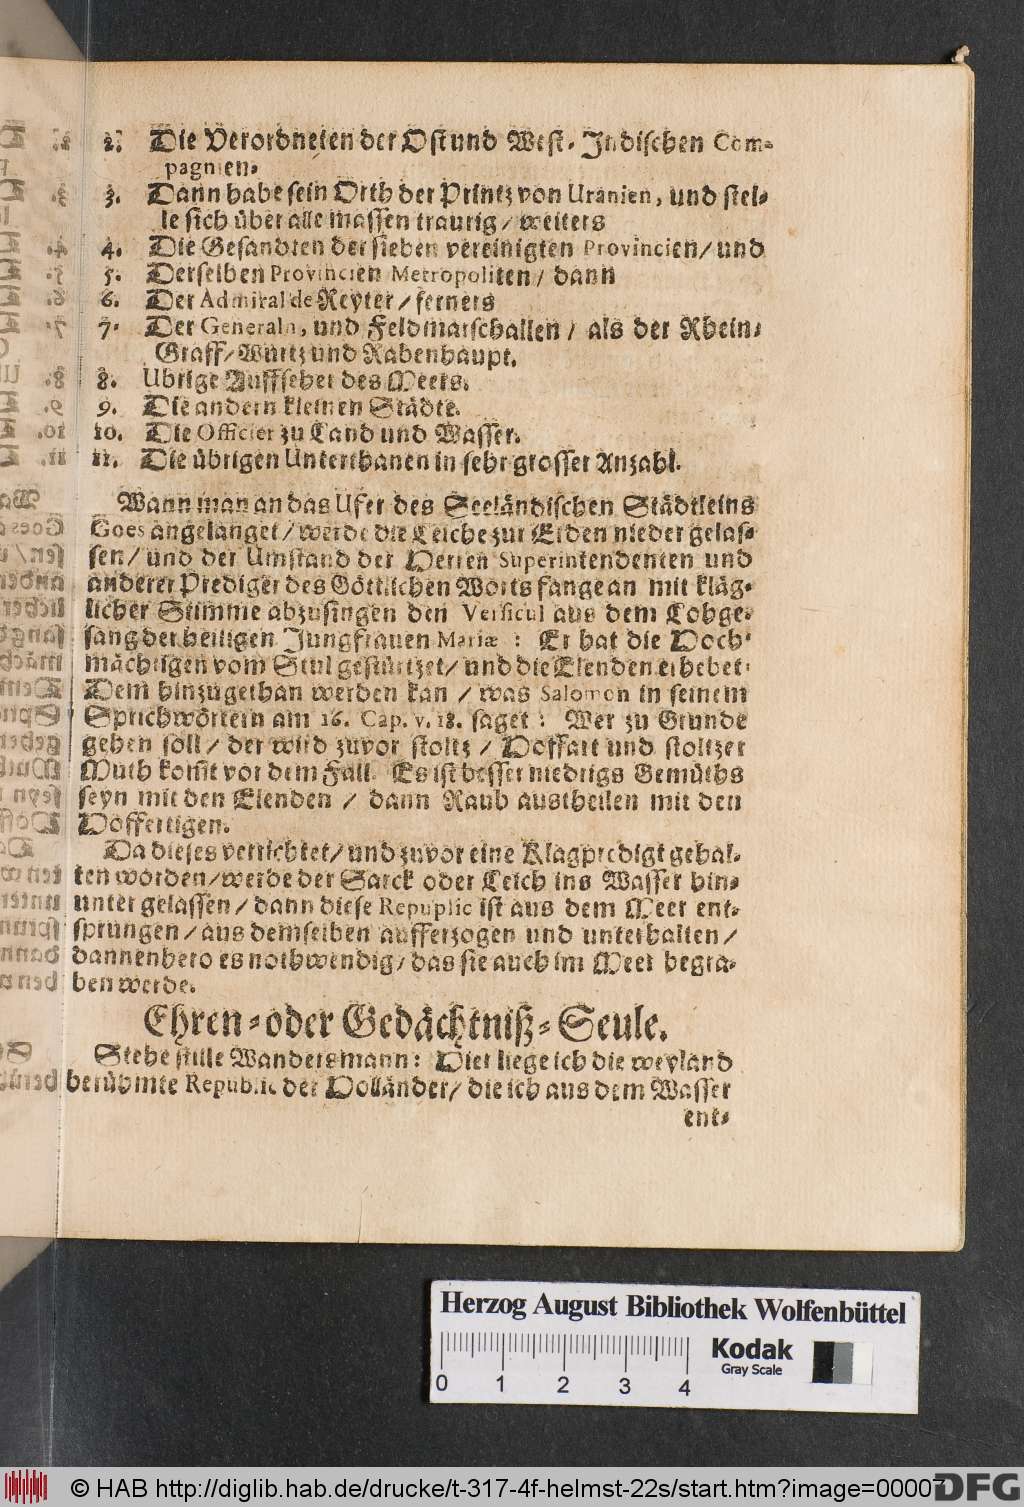 2. Die Verordneten der Ost und West-Indischen Com-
pagnien.
3. Dann habe sein Orth der Printz von Uranien, und stel-
le sich über alle massen traurig/ weiters
4. Die Gesandten der sieben vereinigten Provincien/ und
5. Derselben Provincien Metropoliten/ dann
6. Der Admiral de Reyter/ ferners
7. Der Generaln, und Feldmarschallen/ als der Rhein-
Graff/ Würtz und Rabenhaupt.
8. Ubrige Auffseher des Meers.
9. Die andern kleinen Städte.
10. Die Officier zu Land und Wasser.
11. Die übrigen Unterthanen in sehr grosser Anzahl.
Wann man an das Ufer des Seeländischen Städtleins
Goes angelanget/ werde die Leiche zur Erden nieder gelas-
sen/ und der Umstand der Herren Superintendenten und
anderer Prediger des Göttlichen Worts fange an mit kläg-
licher Stimme abzusingen den Versicul aus dem Lobge-
sang der heiligen Jungfrauen Mariæ : Er hat die Hoch-
mächtigen vom Stul gestürtzet/ und die Elenden erhebet:
Dem hinzugethan werden kan / was Salomon in seinem
Sprichwörtern am 16. Cap. v. 18. saget : Wer zu Grunde
gehen soll/ der wird zuvor stoltz / Hoffart und stoltzer
Muth komt vor dem Fall. Es ist besser niedrigs Gemüths
seyn mit den Elenden / dann Raub austheilen mit den
Höffertigen.
Da dieses verrichtet/ und zuvor eine Klagpredigt gehal-
ten worden/ werde der Sarck oder Leich ins Wasser hin-
unter gelassen/ dann diese Repuplic ist aus dem Meer ent-
sprungen/ aus demselben aufferzogen und unterhalten/
dannenhero es nothwendig/ das sie auch im Meer begra-
ben werde.
Ehren-oder Gedächtniß-Seule.
Stehe stille Wandersmann: Hier liege ich die weyland
berühmte Republic der Holländer/ die ich aus dem Wasser
ent-
Herzog August Bibliothek Wolfenbüttel
Kodak
Gray Scale
0 1 2 3 4
© HAB http://diglib.hab.de/drucke/t-317-4f-helmst-22s/start.htm?image=00007
DFG